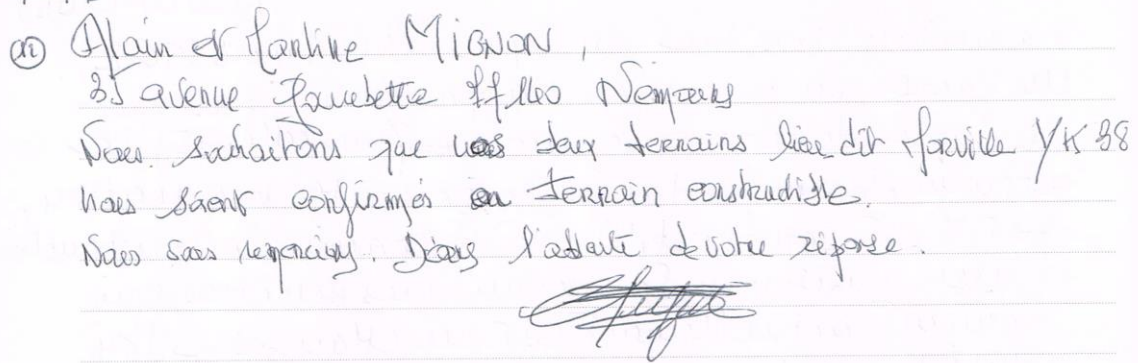 Alain et Martine MIGNON,
35 avenue Gambetta 77140 Nemours
Nous souhaitons que nos deux terrains lieu dit YK 98
nous soient confirmés en terrain constructible.
Nous vous remercions. Dans l'attente de votre réponse.